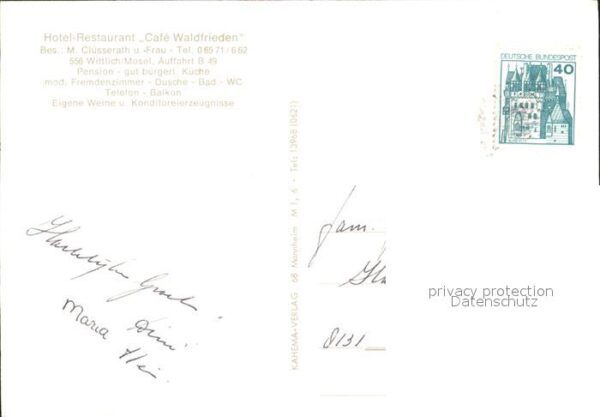 Hotel-Restaurant „Café Waldfrieden"
Bes.: M. Clüsserath u. Frau - Tel. 06571/662
556 Wittlich/Mosel, Auffahrt B 49
Pension - gut bürgerl. Küche
mod. Fremdenzimmer - Dusche - Bad - WC
Telefon - Balkon
Eigene Weine u. Konditoreierzeugnisse
DEUTSCHE BUNDESPOST
40
KAHEMA-VERLAG 68 Mannheim M 1, 6 - Tele 13968 (0621)
Fam.
8131
privacy protection
Datenschutz
Maria